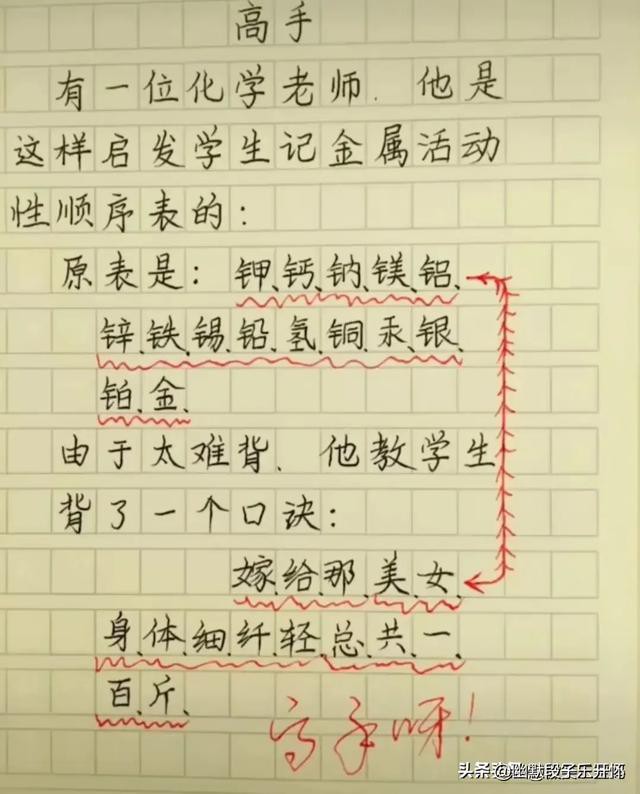 高手
有一位化学老师. 他是
这样启发学生记金属活动
性顺序表的:
原表是: 钾、钙、钠、镁、铝、
锌、铁、锡、铅、氢、铜、汞、银、
铂、金、
由于太难背、他教学生
背了一个口诀:
嫁、给、那、美、女、
身、体、细、纤、轻、总、共、一、
百、斤、
高手呀!
头条 @幽默段子王开怀